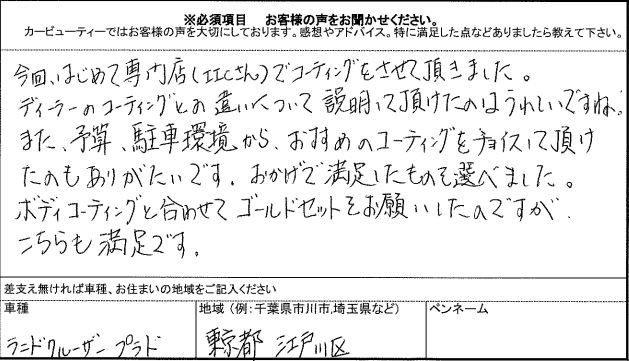 ※必須項目　お客様の声をお聞かせください。
カービューティーではお客様の声を大切にしております。感想やアドバイス。特に満足した点などありましたら教えて下さい。
今回、はじめて専門店(IICさん)でコーティングをさせて頂きました。
ディーラーのコーティングとの違いについて説明して頂けたのはうれしいですね。
また、予算、駐車環境から、おすすめのコーティングをチョイスして頂け
たのもありがたいです。おかげで満足したものを選べました。
ボディコーティングと合わせてゴールドセットをお願いしたのですが、
こちらも満足です。
差支え無ければ車種、お住まいの地域をご記入ください
車種　地域 (例:千葉県市川市,埼玉県など)　ペンネーム
ランドクルーザープラド　東京都 江戸川区